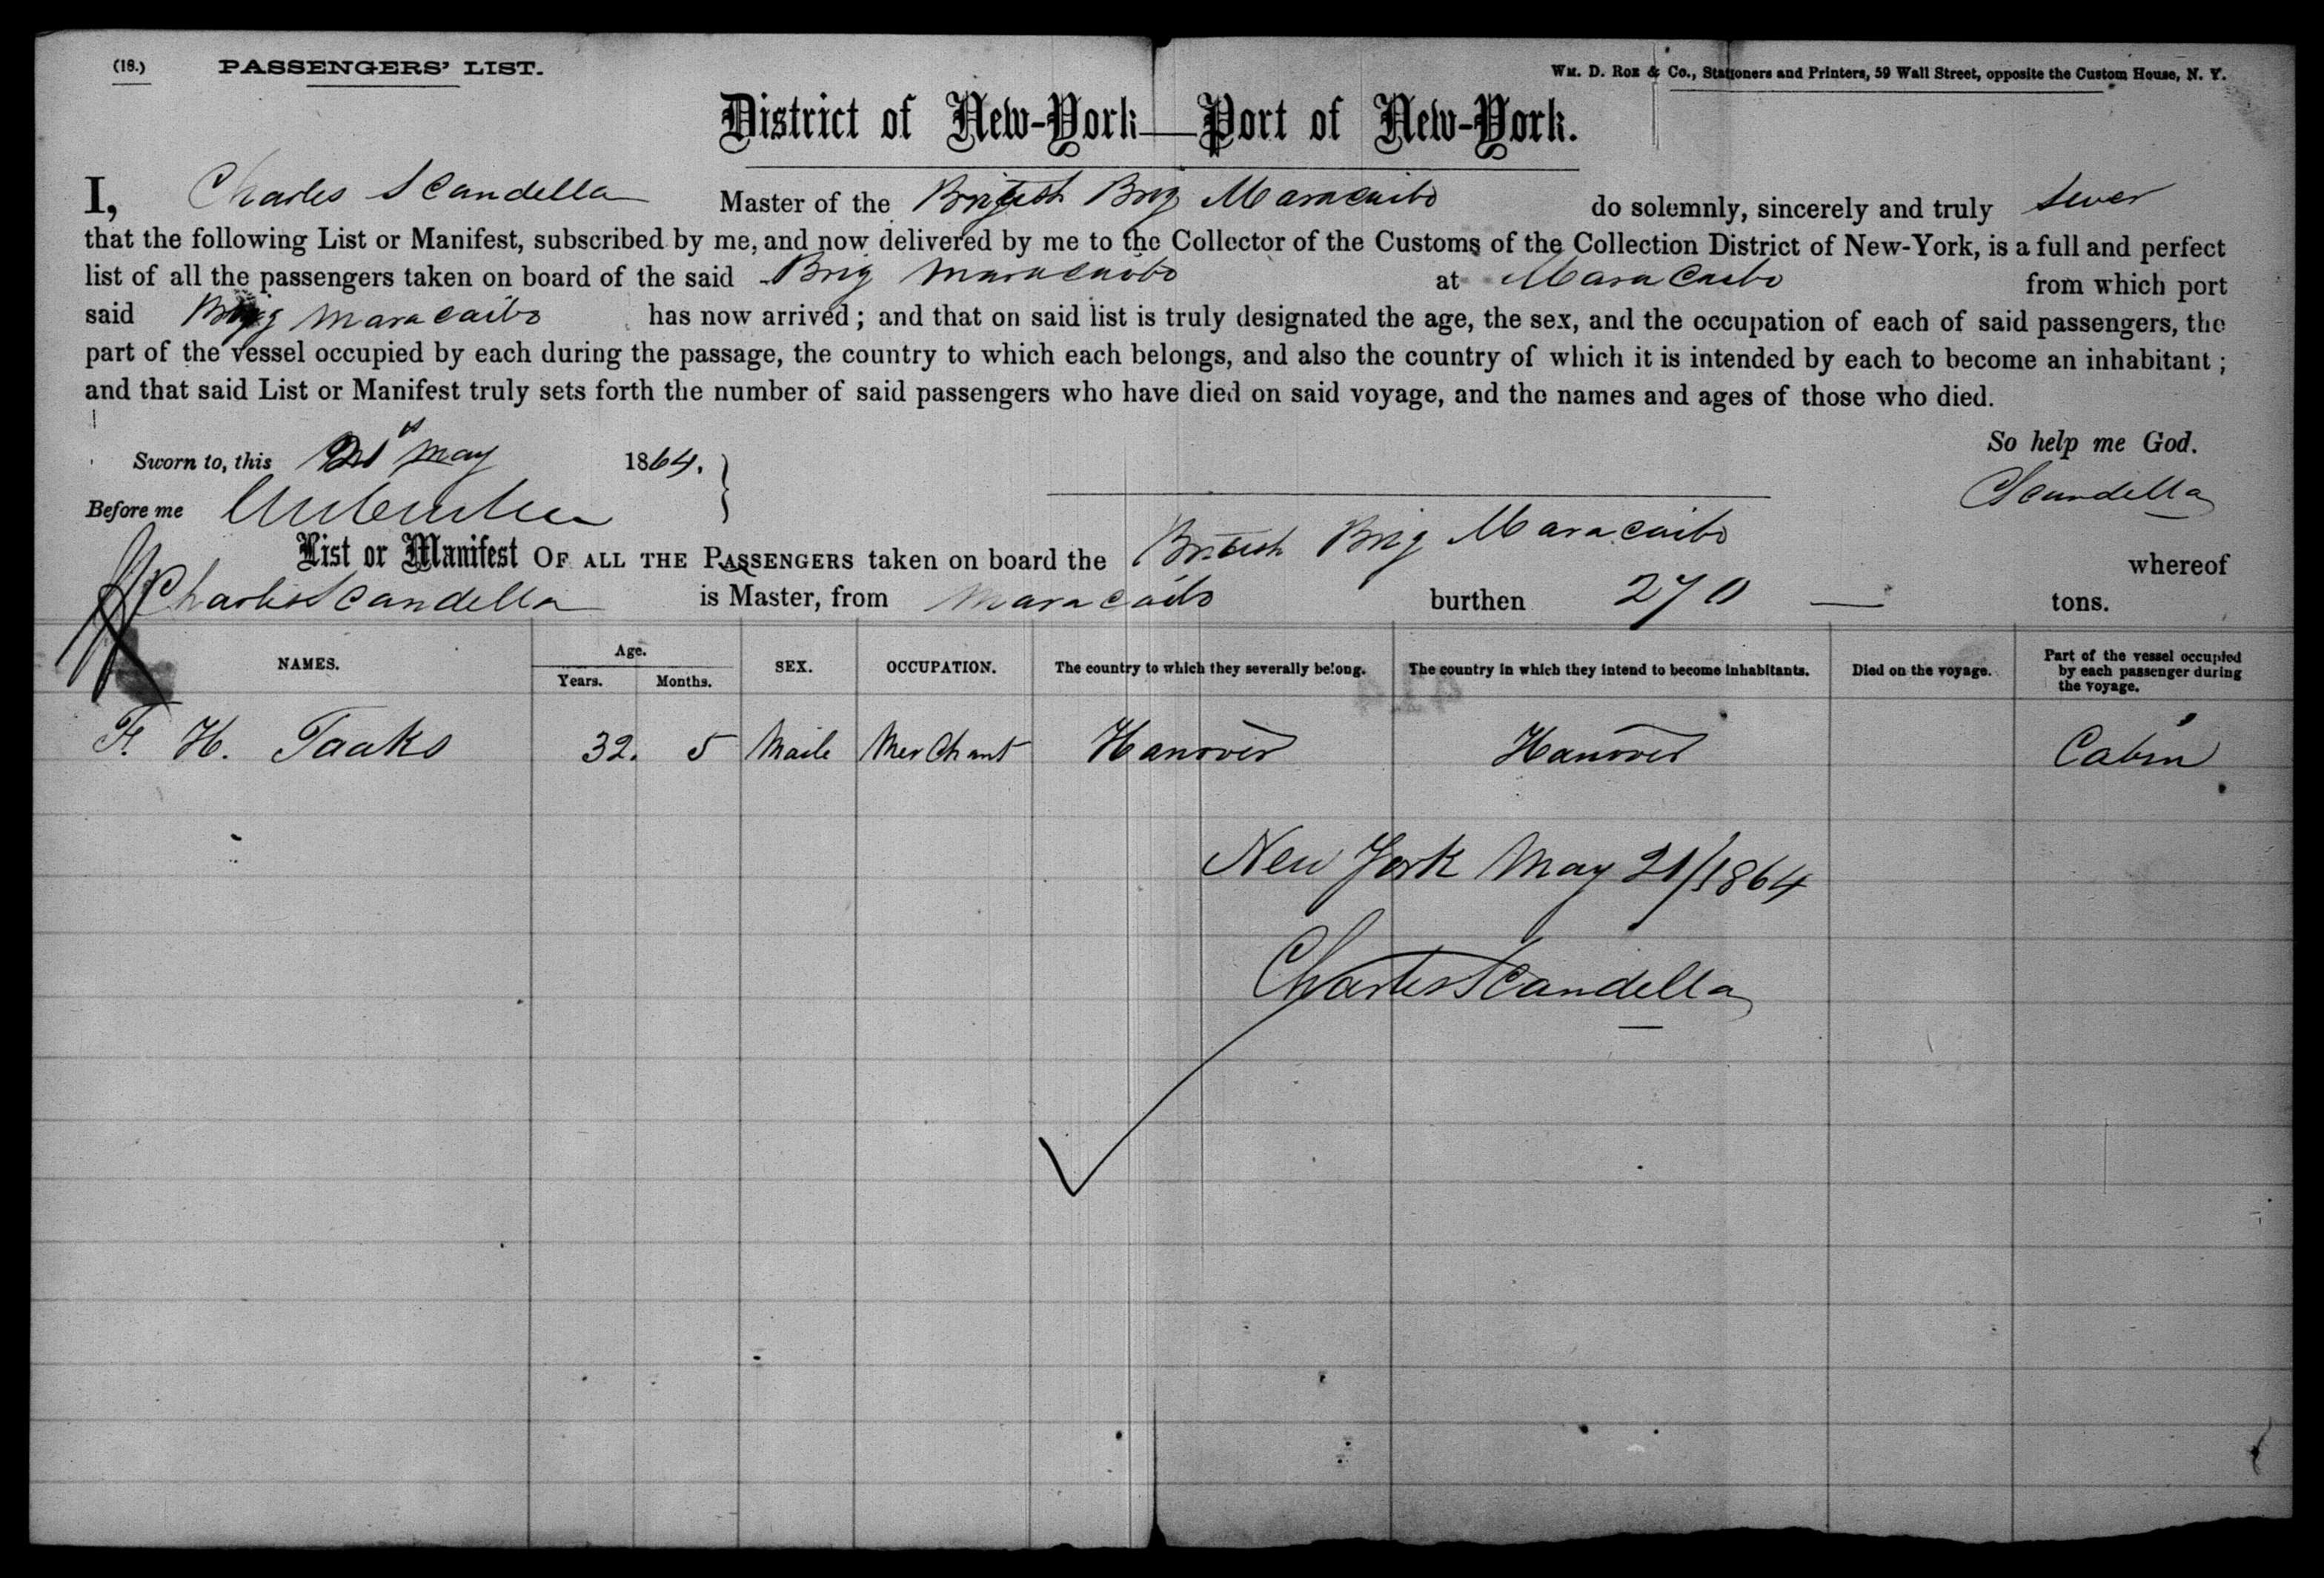 (18.) PASSENGERS' LIST. Wm. D. Roe & Co., Stationers and Printers, 59 Wall Street, opposite the Custom House, N. Y.
District of New-York—Port of New-York.
I, Charles Scandella Master of the British Brig Maracaibo do solemnly, sincerely and truly swer
that the following List or Manifest, subscribed by me, and now delivered by me to the Collector of the Customs of the Collection District of New-York, is a full and perfect
list of all the passengers taken on board of the said Brig Maracaibo at Maracaibo from which port
said Brig Maracaibo has now arrived; and that on said list is truly designated the age, the sex, and the occupation of each of said passengers, the
part of the vessel occupied by each during the passage, the country to which each belongs, and also the country of which it is intended by each to become an inhabitant;
and that said List or Manifest truly sets forth the number of said passengers who have died on said voyage, and the names and ages of those who died.
So help me God.
Sworn to, this 21st May 1864.
CScandella
Before me
List or Manifest OF ALL THE PASSENGERS taken on board the British Brig Maracaibo whereof
Charles Scandella is Master, from Maracaibo burthen 270 — tons.
NAMES. Age. Years. Months. SEX. OCCUPATION. The country to which they severally belong. The country in which they intend to become inhabitants. Died on the voyage. Part of the vessel occupied by each passenger during the voyage.
F. H. Taaks 32. 5 Maile Merchant Hanover Hanover Cabin
New York May 21/1864
Charles Scandella